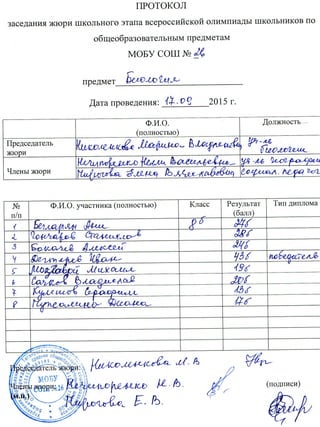 ПРОТОКОЛ
заседания жюри школьного этапа всероссийской олимпиады школьников по
общеобразовательным предметам
МОБУ СОШ № 26
предмет Биология
Дата проведения: 17.09 2015 г.
Ф.И.О. (полностью) Должность
Председатель жюри Марина Владимировна уч-ль биологии
Члены жюри Нечипоренко Нелли Васильевна уч-ль географии
Елена Вячеславовна социал. педагог
№ п/п Ф.И.О. участника (полностью) Класс Результат (балл) Тип диплома
1 Бегларян 8б 27б
2 Гончаров Станислав 28б
3 Алексей 24б
4 Дегтярев Иван 43б победитель
5 Мозговой Михаил 19б
6 Сачков Владислав 20б
7 Серафим 13б
8 Диана 17б
Председатель жюри: М. В.
Члены жюри: Нечипоренко Н. В. (подписи)
(м.п.) Е. В.
МОБУ